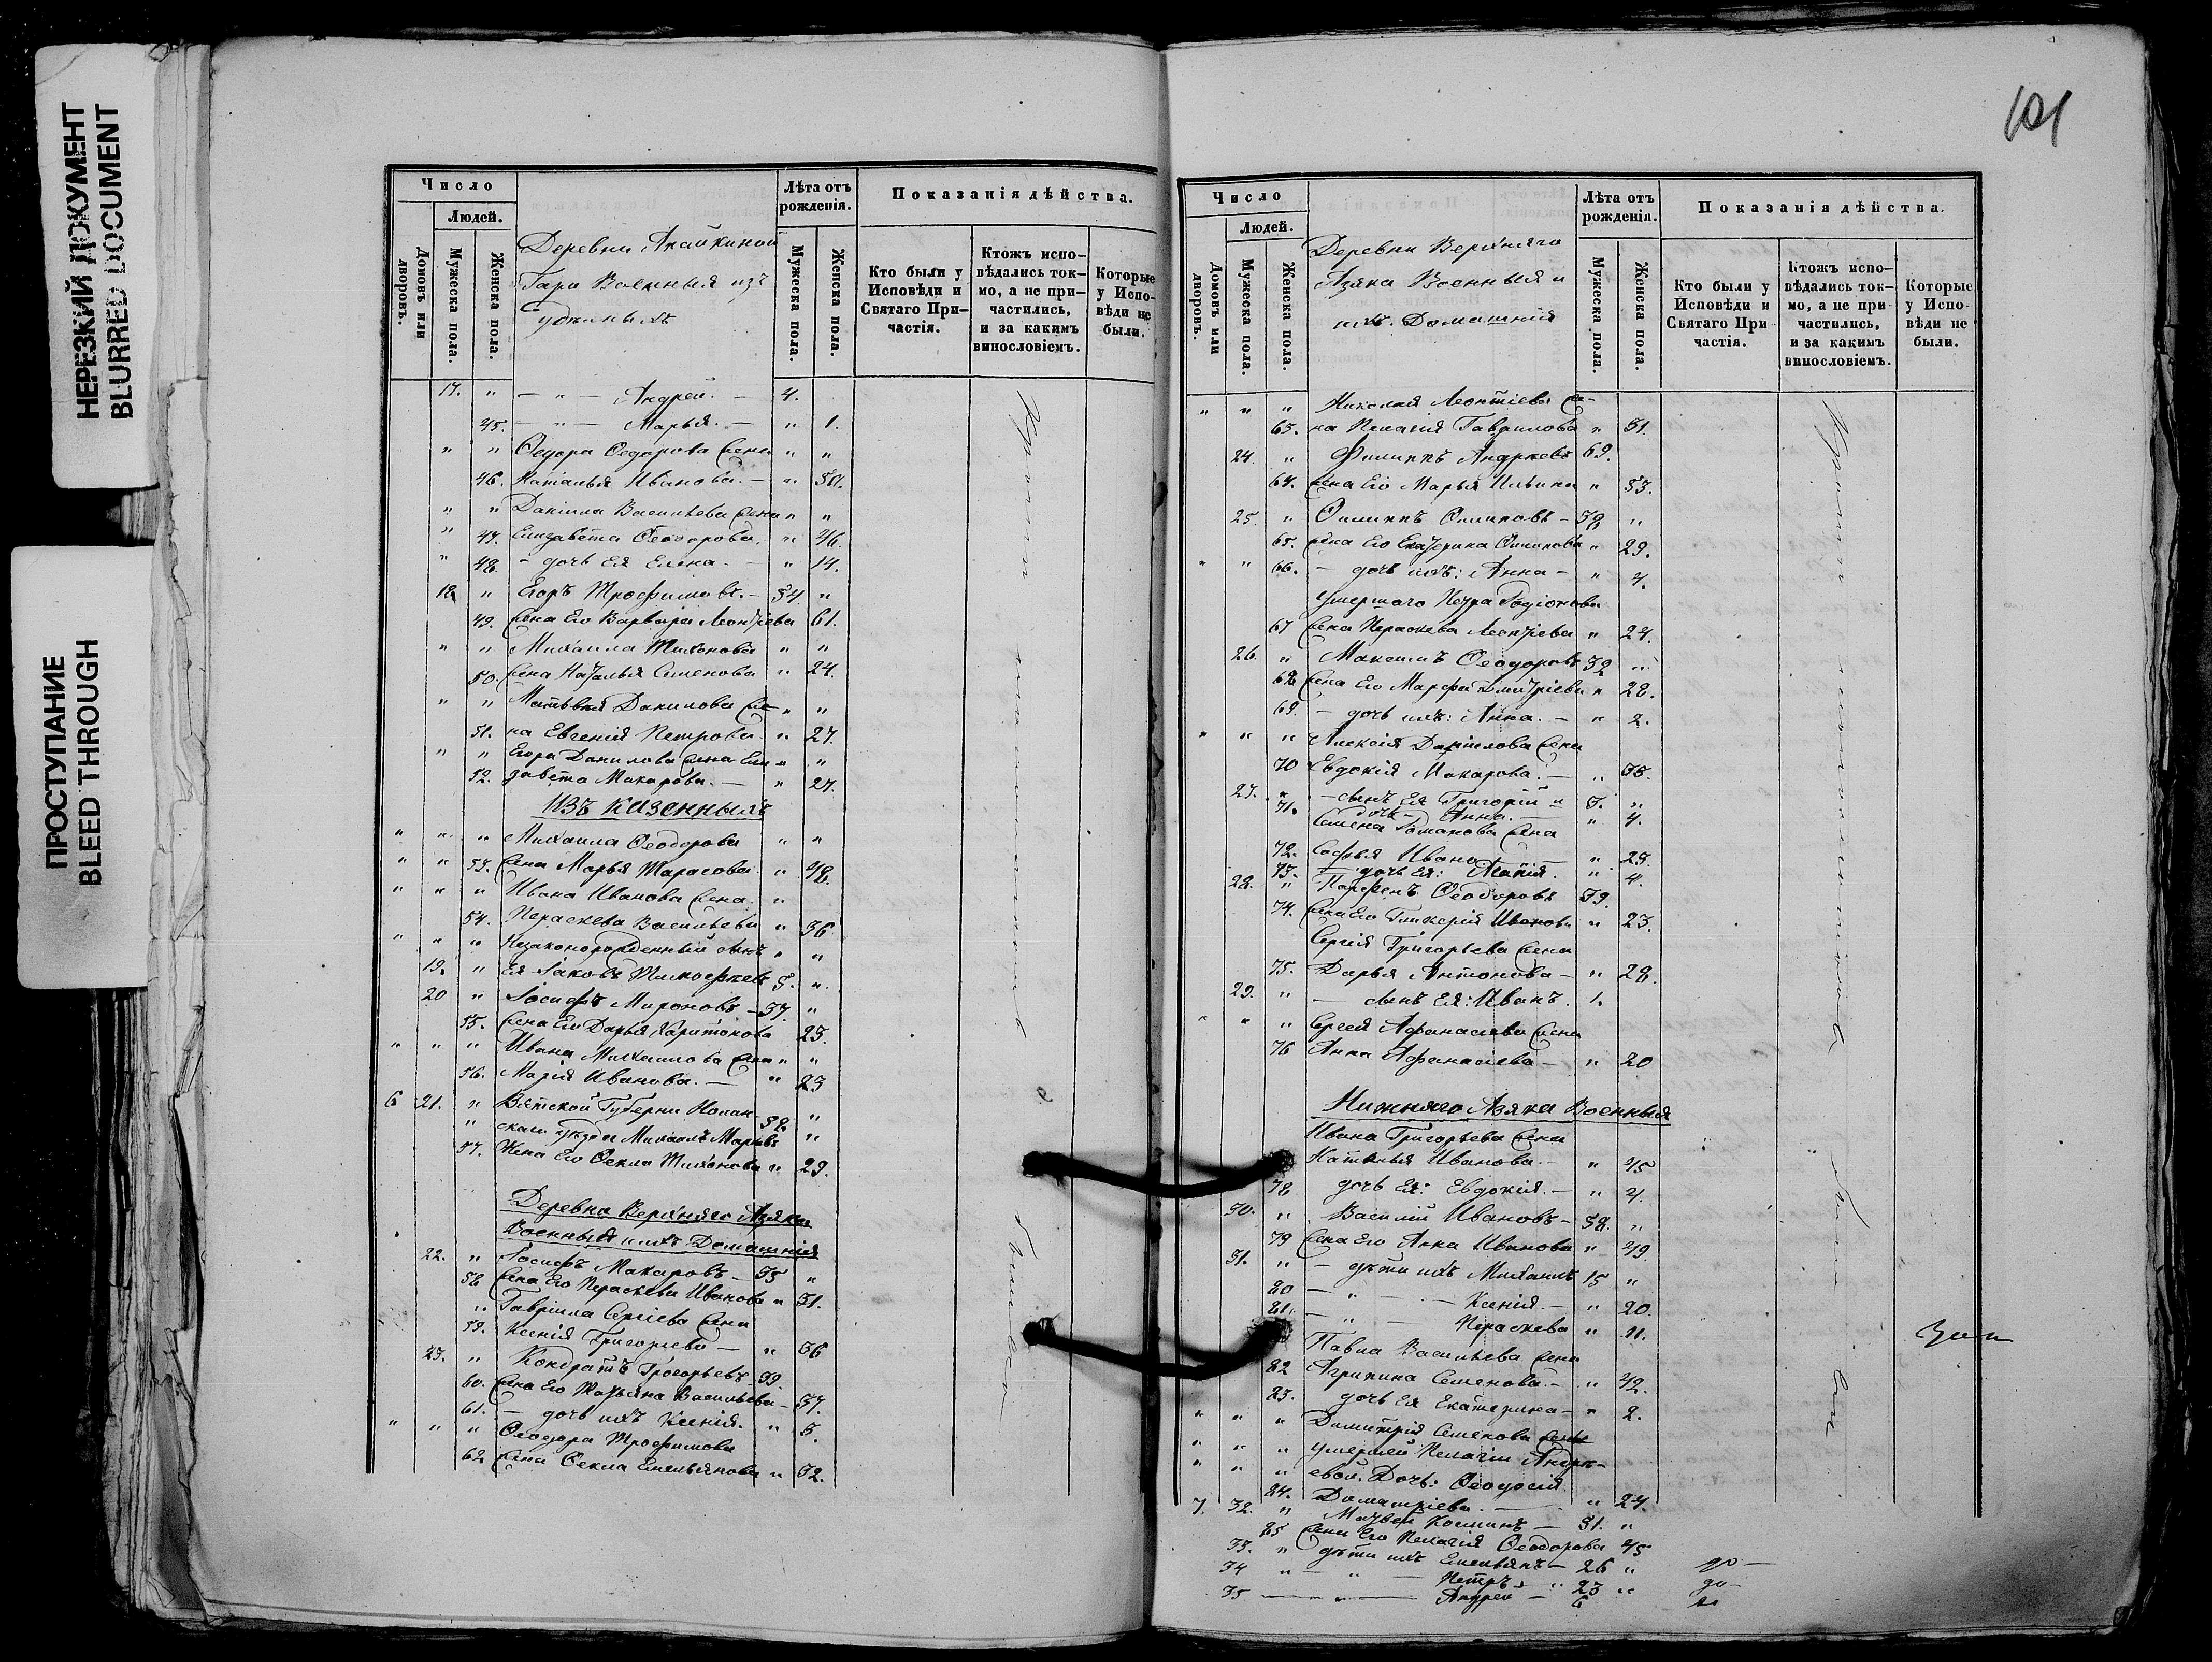 НЕРЕЗКИЙ ДОКУМЕНТ
BLURRED DOCUMENT
ПРОСТУПАНИЕ
BLEED THROUGH
Число
Людей.
Домовъ или дворовъ.
Мужеска пола.
Женска пола.
Деревни Акайкиной
Гари Военныя изъ
Удѣльныхъ
Лѣта отъ рожденія.
Мужеска пола.
Женска пола.
Показанія дѣйства.
Кто были у Исповѣди и Святаго При-частія.
Ктожъ испо-вѣдались ток-мо, а не при-частились, и за какимъ винословіемъ.
Которые у Испо-вѣди не были.
17. " — " — Андрей. — 4.
45. — " — Марья. — " 1.
" " Ѳедора Ѳедорова жена " "
46. Наталья Иванова. — "
" " Даніила Васильева жена " "
" 47. Елизавета Ѳеодорова. " 46.
" 48. — дочь Ея Елена. — " 14.
18. " Егоръ Трофимовъ. — 54 "
49. жена Его Варвара Леонтьева 61.
" " Михаила Тихонова " "
50. жена Наталья Семенова " 24.
" " Матѳея Данилова же- " "
51. на Евгенія Петрова " 27.
" " Егора Данилова жена Ели- " "
52. завета Макарова. — " 27.
Изъ казенныхъ
" " " Михаила Ѳеодорова " "
" " 53. жена Марья Тарасова. " 48.
" " " Ивана Иванова жена "
54. Параскева Васильева " 36
" " " Незаконорожденный сынъ " "
19. " Ея Іаковъ Тимофѣевъ 5. "
20 " Іосифъ Мироновъ — 37. "
55. жена Его Дарья Харитонова 23.
" " " Ивана Михайлова жена " "
56. Марія Иванова. — " 23
6 21. " Вятской Губерніи Нолин- 32. "
" скаго уѣзда Михаилъ "
57. Жена Его Ѳекла Тихонова " 29.
Деревни Верхняго Азяка
Военныя и ихъ Домашнія
22. " Іосифъ Макаровъ — 35 "
58 жена Его Параскева Иванова " 31.
" Гавріила Сергіева жена
59. Ксенія Григорьева — " 36
23. " Кондратъ Григорьевъ 39.
60. жена Его Татьяна Васильева — 37.
61. — дочь ихъ Ксенія. " 3.
" " " Ѳеодора Трофимова
62. жена Ѳекла Емельянова " 32.
101
Число
Людей.
Домовъ или дворовъ.
Мужеска пола.
Женска пола.
Деревни Верхняго
Азяка Военныя и
ихъ Домашнія
Лѣта отъ рожденія.
Мужеска пола.
Женска пола.
Показанія дѣйства.
Кто были у Исповѣди и Святаго При частія.
Ктожъ испо-вѣдались ток-мо, а не при частились, и за какимъ винословіемъ.
Которые у Испо-вѣди не были.
" " " Николая Леонтіева же-
63. на Пелагія Гаврилова " 31.
24. " Филиппъ Андреевъ 69.
64. жена Его Марья Ильина " 53.
25. " 32 "
65. жена Его Екатерина " 29.
" " 66. — дочь ихъ: Анна — " 4.
Умершаго Петра Родіонова
67 жена Параскева Леонтьева " 24.
26. " Максимъ Ѳеодоровъ 32 "
68 жена Его Марфа Дмитріева " 28.
69. — дочь ихъ: Анна. — " 2.
" " " Алексія Данилова жена
70 Евдокія Макарова. — " 35.
27. " — сынъ Ея Григорій " 7. "
71. дочь — Анна. — " 4.
Семена Романова жена
72. Софья Ивано " 25.
73. — дочь Ея: Агапія. " 4.
28. " Парфенъ Ѳеодоровъ 39.
74. жена Его Гликерія Иванова " 23.
Сергія Григорьева жена
75. Дарья Антонова — " 28.
29. " — сынъ Ея: Иванъ. 1.
" " " Сергея Афанасьева жена
76 Анна Афанасіева — " 20
Нижняго Азяка Военныя
Ивана Григорьева жена
Наталья Иванова. — " 45
78 дочь Ея: Евдокія. — " 4.
30. " Василій Ивановъ — 58. "
79 жена Его Анна Иванова " 49.
31. " — дѣти ихъ Михаилъ 15 "
80 — " — Ксенія. — " 20.
81. — " — Параскева " 11.
Павла Васильева жена
82 Агрипина Семенова. — " 42.
83. дочь Ея Екатерина — " 2.
" " " Димитрія Семенова жены
" " " умершей Пелагіи Андре-
" " " евой. Дочь: Ѳеодосія
84. Димитріева. — " 24.
7. 32. " Матвей Косминъ — 51. "
85 жена Его Пелагія Ѳеодорова 45
33. " дѣти ихъ Емельянъ — 26 " до —
34 " — " — Петръ — " 23 " до —
35 — " — Андрей — 6